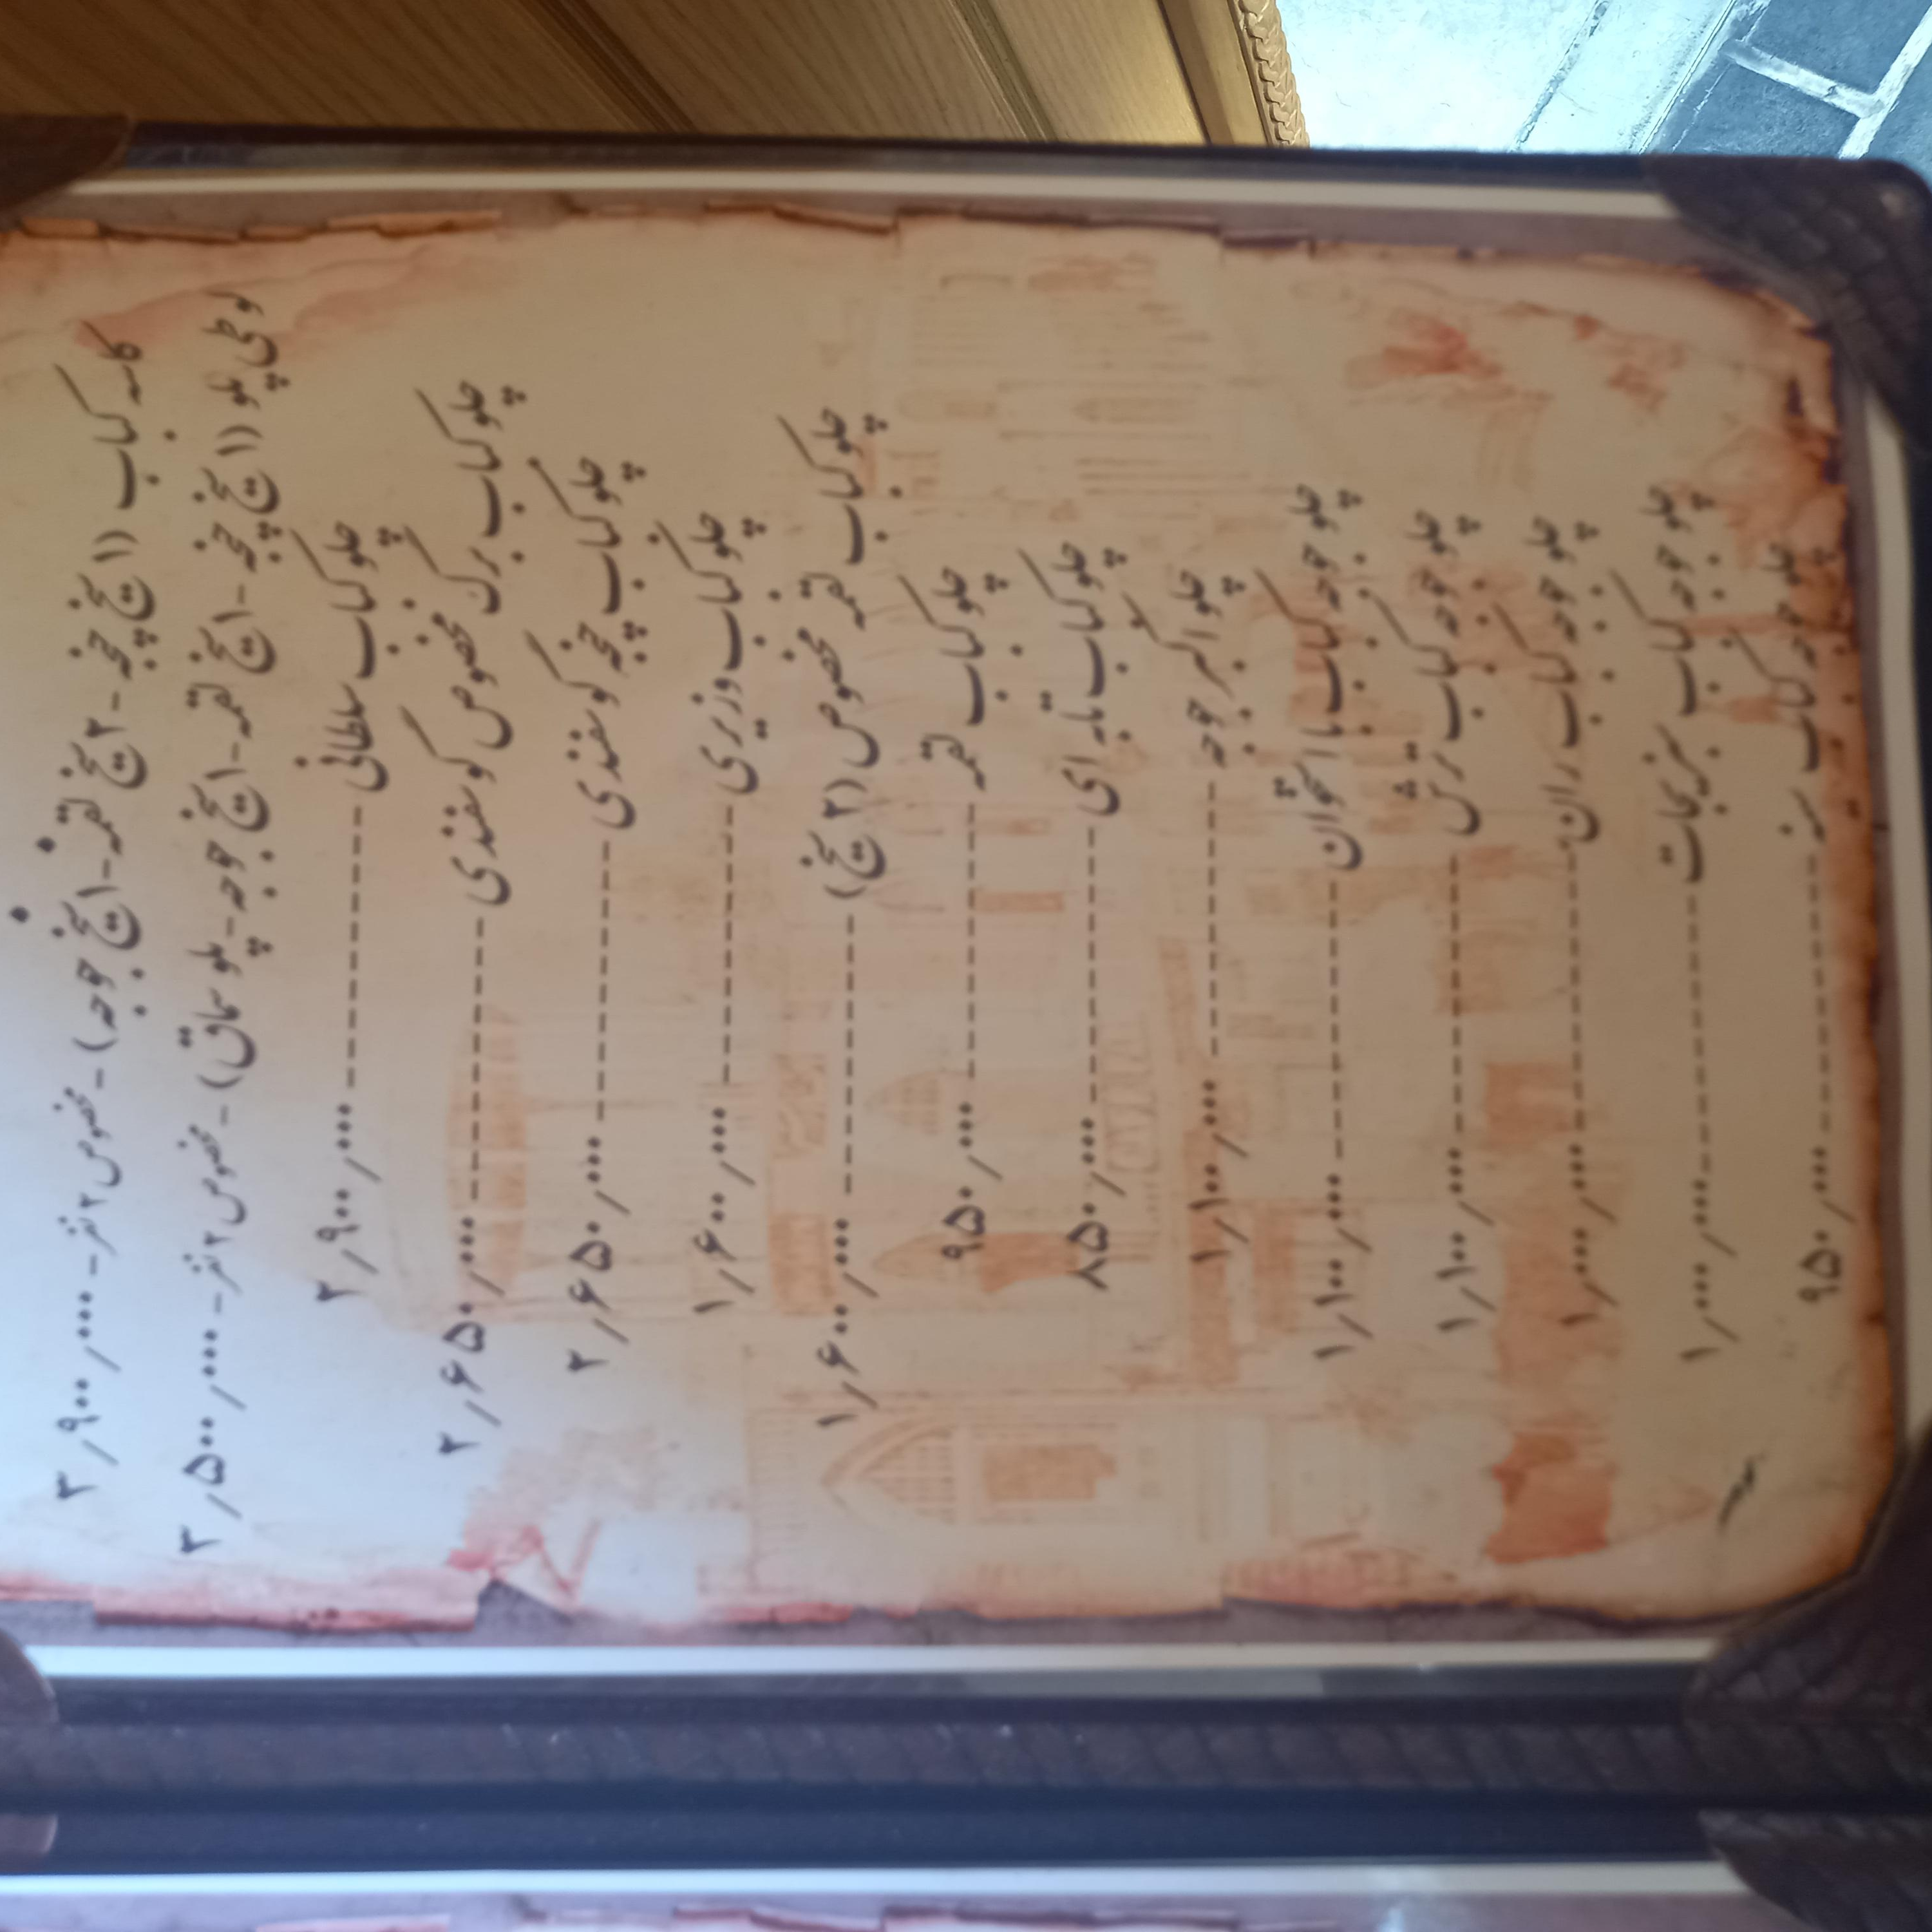 کاسه کباب (۱ سیخ چنجه - ۲ سیخ لقمه - ۱ سیخ جوجه) - مخصوص ۲ نفر - ۲٫۹۰۰٫۰۰۰
لوطی پلو (۱ سیخ چنجه - ۱ سیخ لقمه - ۱ سیخ جوجه - پلو سماق) - مخصوص ۲ نفر - ۲٫۵۰۰٫۰۰۰
چلو کباب سلطانی ------------ ۲٫۹۰۰٫۰۰۰
چلو کباب برگ مخصوص گوسفندی ------------ ۲٫۶۵۰٫۰۰۰
چلو کباب چنجه گوسفندی ------------ ۲٫۶۵۰٫۰۰۰
چلو کباب وزیری ------------ ۱٫۶۰۰٫۰۰۰
چلو کباب لقمه مخصوص (۲ سیخ) ------------ ۱٫۶۰۰٫۰۰۰
چلو کباب لقمه ------------ ۹۵۰٫۰۰۰
چلو کباب تابه ای ------------ ۸۵۰٫۰۰۰
چلو اکبر جوجه ------------ ۱٫۱۰۰٫۰۰۰
چلو جوجه کباب با استخوان ------------ ۱٫۱۰۰٫۰۰۰
چلو جوجه کباب ترش ------------ ۱٫۱۰۰٫۰۰۰
چلو جوجه کباب ران ------------ ۱٫۰۰۰٫۰۰۰
چلو جوجه کباب سبزیجات ------------ ۱٫۰۰۰٫۰۰۰
چلو جوجه کباب سینه ------------ ۹۵۰٫۰۰۰